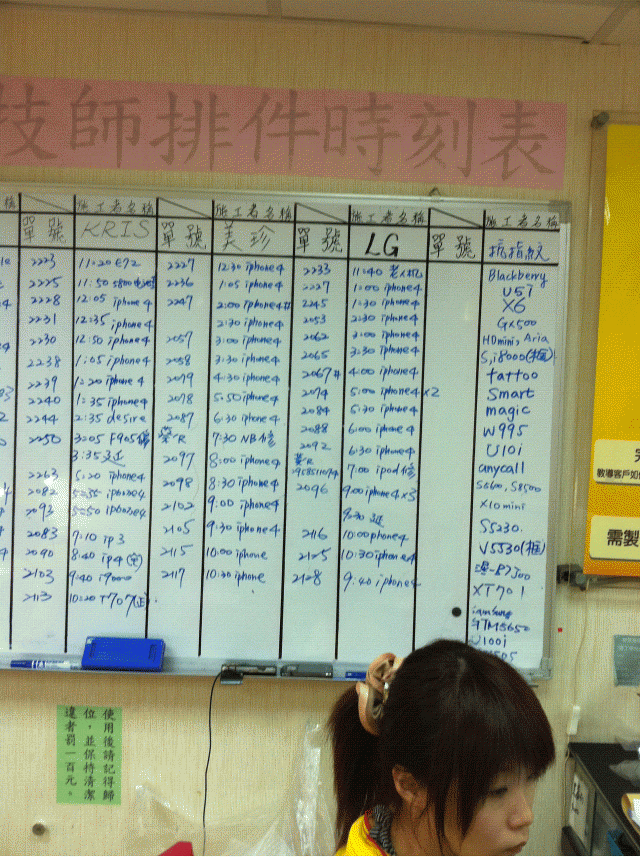 技師排件時刻表
單號 施工者名稱 KRIS
2223 11:20 E72
2225 11:50
2228 12:05 iphone4
2231 12:35 iphone4
2230 12:50 iphone4
2238 1:05 iphone4
2239 1:20 iphone4
2240 1:35 iphone4
2244 2:35 desire
2250 3:05 F905
3:35
2263 5:20 iphone4
2082 5:35 iphone4
2093 5:50 iphone4
2083 7:10 ip3
2090 8:40 ip4
2103 9:40 i9000
2113 10:20 T707
單號 施工者名稱 美珍
2227 12:30 iphone4
2236 1:05 iphone4
2247 2:00 iphone4#
2:30 iphone4
2057 3:00 iphone4
2058 3:30 iphone4
2079 4:30 iphone4
2078 5:50 iphone4
2087 6:30 iphone4
7:30 NB修
2097 8:00 iphone4
2098 8:30 iphone4
2102 9:00 iphone4
2105 9:30 iphone4
2115 10:00 iphone
2117 10:30 iphone
單號 施工者名稱 LG
2233 11:40
2227 1:00 iphone4
2245 1:30 iphone4
2053 2:30 iphone4
2062 3:00 iphone4
2065 3:30 iphone4
2067# 4:00 iphone4
2074 5:00 iphone4 x2
2084 5:30 iphone4
2088 6:00 iphone4
2092 6:30 iphone4
7:00 ipod修
2096 9:00 iphone4x3
9:30
2116 10:00 phone4
2125 10:30 iphone4
2128 9:40 iphone4
單號 施工者名稱 抗指紋
Blackberry
U5i
X6
GX500
HDmini Aria
S,i8000(框)
tattoo
Smart
magic
W995
U10i
anycall
S6600, S8500
X10 mini
S5230
V5530(框)
XT701
iamsung
U100i
使用後請記得歸
位,並保持清潔
違者罰一百元。
教導客戶如
需製